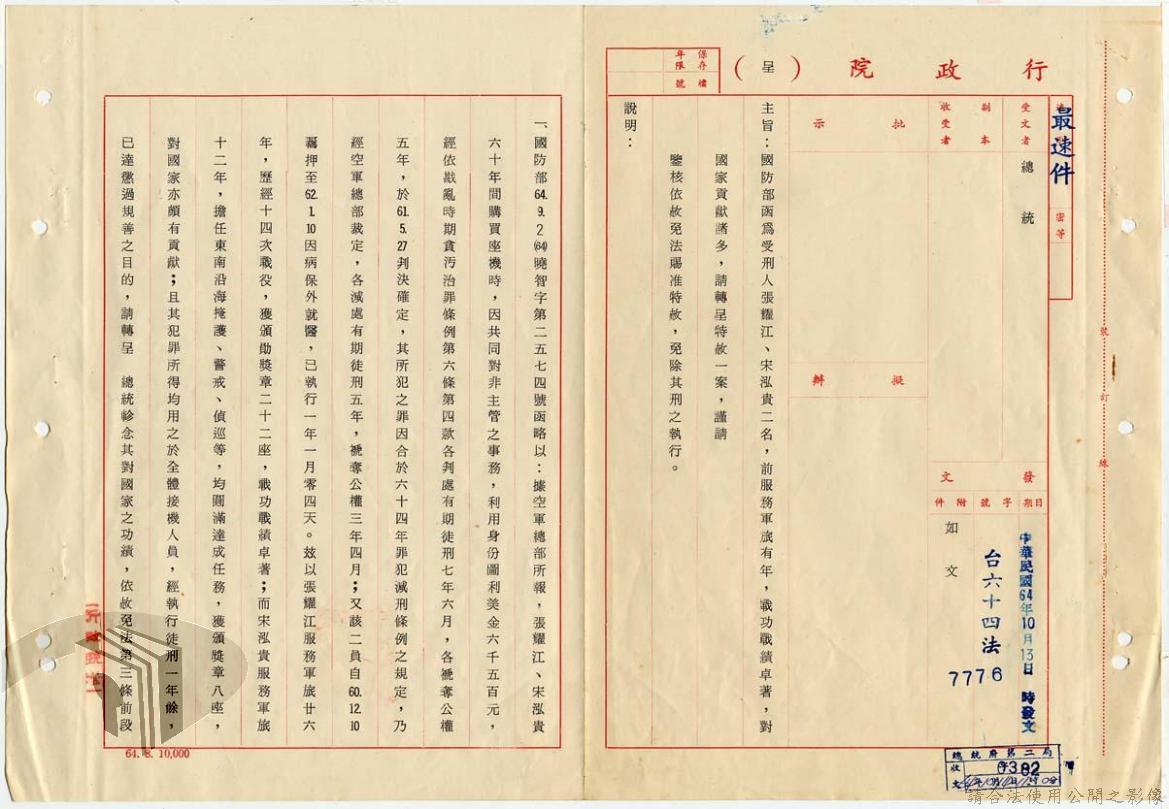 行政院(呈)
保存年限
檔號
最速件
密等
受文者
總統
副本收受者
批示
擬辦
發文
日期
字號
附件
中華民國64年10月13日 時發文
台六十四法
7776
如文
主旨:國防部函為受刑人張耀江、宋泓貴二名,前服務軍旅有年,戰功戰績卓著,對
國家貢獻諸多,請轉呈特赦一案,謹請
鑒核依赦免法賜准特赦,免除其刑之執行。
說明:
一、國防部64.9.2(64)曉智字第二五七四號函略以:據空軍總部所報,張耀江、宋泓貴
六十年間購買座機時,因共同對非主管之事務,利用身份圖利美金六千五百元,
經依戡亂時期貪污治罪條例第六條第四款各判處有期徒刑七年六月,各褫奪公權
五年,於61.5.27判決確定,其所犯之罪因合於六十四年罪犯減刑條例之規定,乃
經空軍總部裁定,各減處有期徒刑五年,褫奪公權三年四月;又該二員自60.12.10
羈押至62.1.10因病保外就醫,已執行一年一月零四天。茲以張耀江服務軍旅廿六
年,歷經十四次戰役,獲頒勛獎章二十二座,戰功戰績卓著;而宋泓貴服務軍旅
十二年,擔任東南沿海掩護、警戒、偵巡等,均圓滿達成任務,獲頒獎章八座,
對國家亦頗有貢獻;且其犯罪所得均用之於全體接機人員,經執行徒刑一年餘,
已達懲過規善之目的,請轉呈 總統軫念其對國家之功績,依赦免法第三條前段
64.8.10,000
號
訂
線
總統府第二局
收文
0382
請合法使用公開之影像